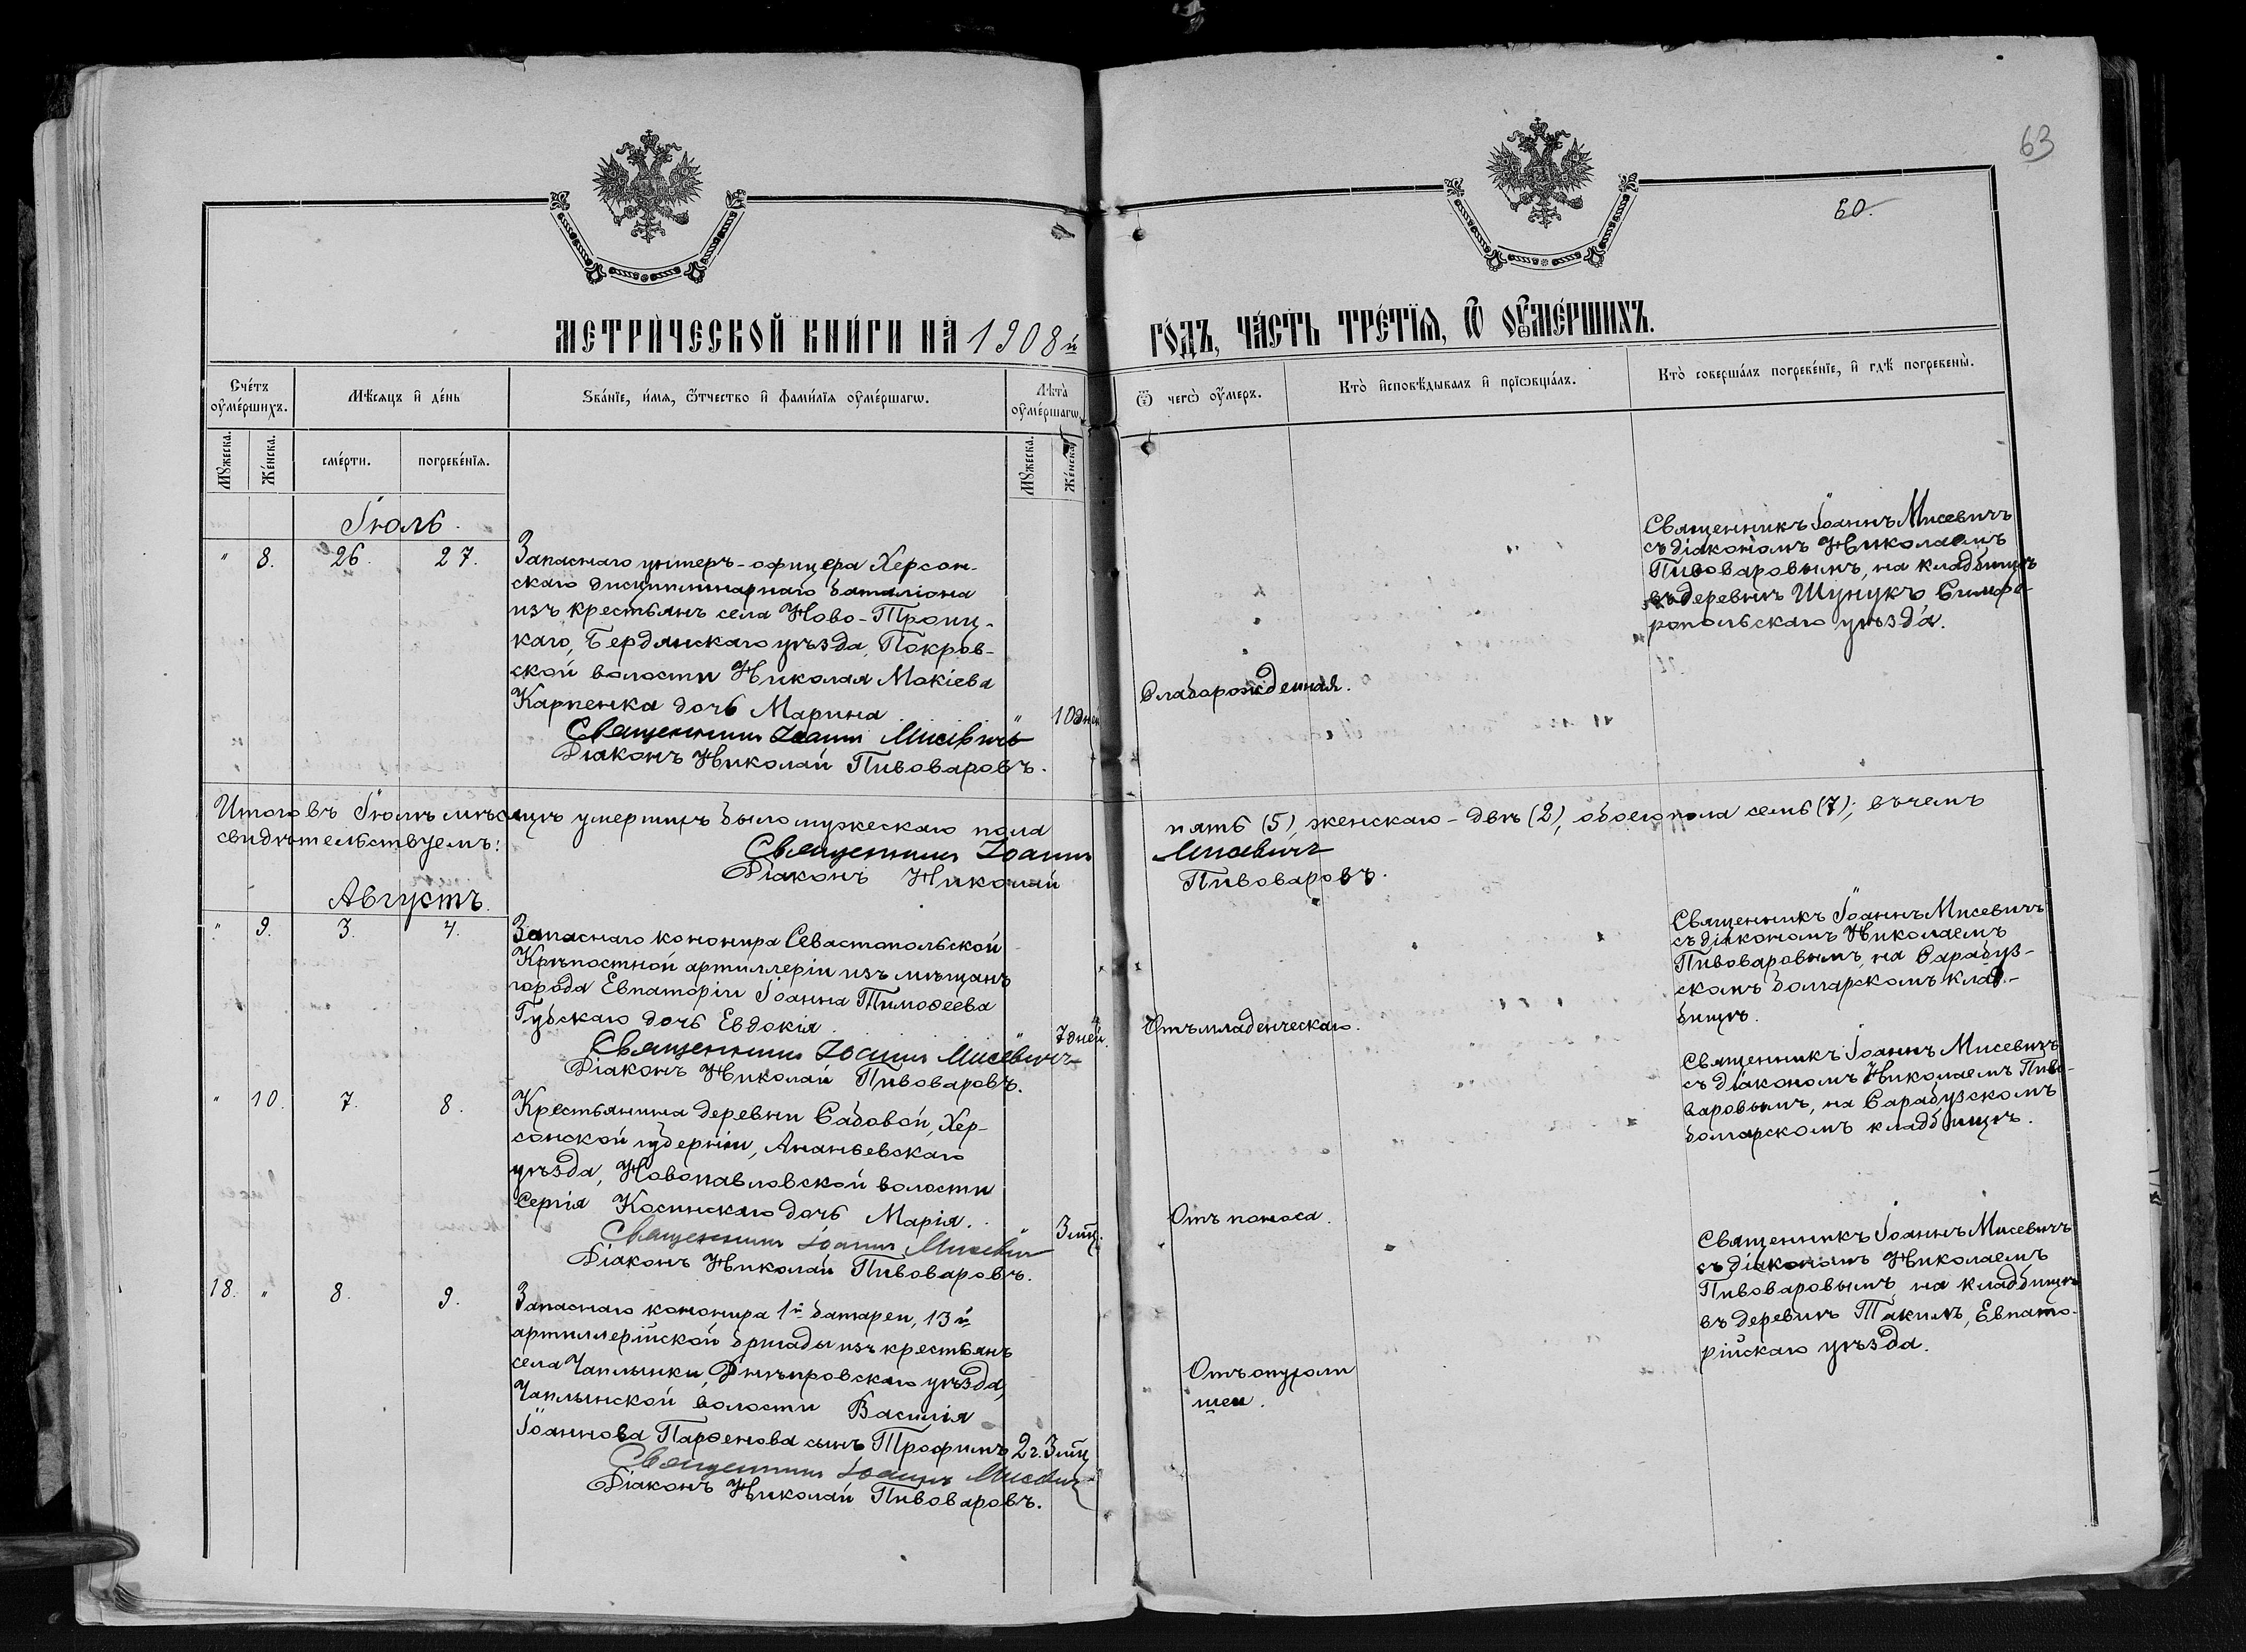 63
60.
МЕТРИ́ЧЕСКОЙ КНИ́ГИ НА 1908 й
ГО́ДЪ, ЧА́СТЬ ТРЕ́ТЇѦ, Ѡ҆ ОУ҆МЕ́РШИХЪ.
Сче́тъ оу҆ме́ршихъ.
Мꙋжеска.
Же́нска.
Мѣ́сяцъ и҆ де́нь
сме́рти.
погребе́нїя.
Ѕва́нїе, и҆́мя, ѻ҆́тчество и҆ фами́лїя оу҆ме́ршагѡ.
Лѣ́та оу҆ме́ршагѡ.
Мꙋжеска.
Же́нска.
Ѿ чегѡ̀ оу҆́меръ.
Кто̀ и҆сповѣ́дывалъ и҆ прїѡбща́лъ.
Кто̀ соверша́лъ погребе́нїе, и҆ гдѣ̀ погребены̀.
Іюль.
" 8. 26. 27.
Запаснаго унтеръ-офицера Херсон-
скаго дисциплинарнаго баталіона
изъ крестьянъ села Ново-Троиц-
каго, Бердянскаго уѣзда, Покров-
ской волости Николая Мокіева
Карпенка дочь Марина
" 10 дней
Священникъ Іоаннъ Мисевичъ
Діаконъ Николай Пивоваровъ.
Слаборожденная.
Священникъ Іоаннъ Мисевичъ
съ діакономъ Николаемъ
Пивоваровымъ, на кладбищѣ
въ деревнѣ Шунукъ Симфе-
ропольскаго уѣзда.
Итого въ Іюлѣ мѣсяцѣ умершихъ было мужескаго пола пять (5), женскаго - двѣ (2), обоего пола семь (7); въ чемъ
свидѣтельствуемъ:
Священникъ Іоаннъ Мисевичъ
Діаконъ Николай Пивоваровъ.
Августъ.
" 9. 3. 4.
Запаснаго канонира Севастопольской
Крѣпостной артиллеріи изъ мѣщанъ
города Евпаторіи Іоанна Тимоѳеева
Губскаго дочь Евдокія.
" 7 дней.
Священникъ Іоаннъ Мисевичъ
Діаконъ Николай Пивоваровъ.
Отъ младенческаго.
Священникъ Іоаннъ Мисевичъ
съ діакономъ Николаемъ
Пивоваровымъ, на Сарабуз-
скомъ болгарскомъ клад-
бищѣ.
" 10. 7. 8.
Крестьянина деревни Садовой, Хер-
сонской губерніи, Ананьевскаго
уѣзда, Новопавловской волости
Сергія Косинскаго дочь Марія.
" 3 мѣц.
Священникъ Іоаннъ Мисевичъ
Діаконъ Николай Пивоваровъ.
Отъ поноса.
Священникъ Іоаннъ Мисевичъ
съ діакономъ Николаемъ Пиво-
варовымъ, на Сарабузскомъ
болгарскомъ кладбищѣ.
18. " 8. 9.
Запаснаго канонира 1й батареи, 13й
артиллерійской бригады изъ крестьянъ
села Чаплынки, Днѣпровскаго уѣзда,
Чаплынской волости Василія
Іоаннова Парѳенова сынъ Трофимъ
2 г. 3 мѣц
Священникъ Іоаннъ Мисевичъ
Діаконъ Николай Пивоваровъ.
Отъ опухоли
шеи.
Священникъ Іоаннъ Мисевичъ
съ діакономъ Николаемъ
Пивоваровымъ, на кладбищѣ
въ деревнѣ Такилъ, Евпато-
рійскаго уѣзда.